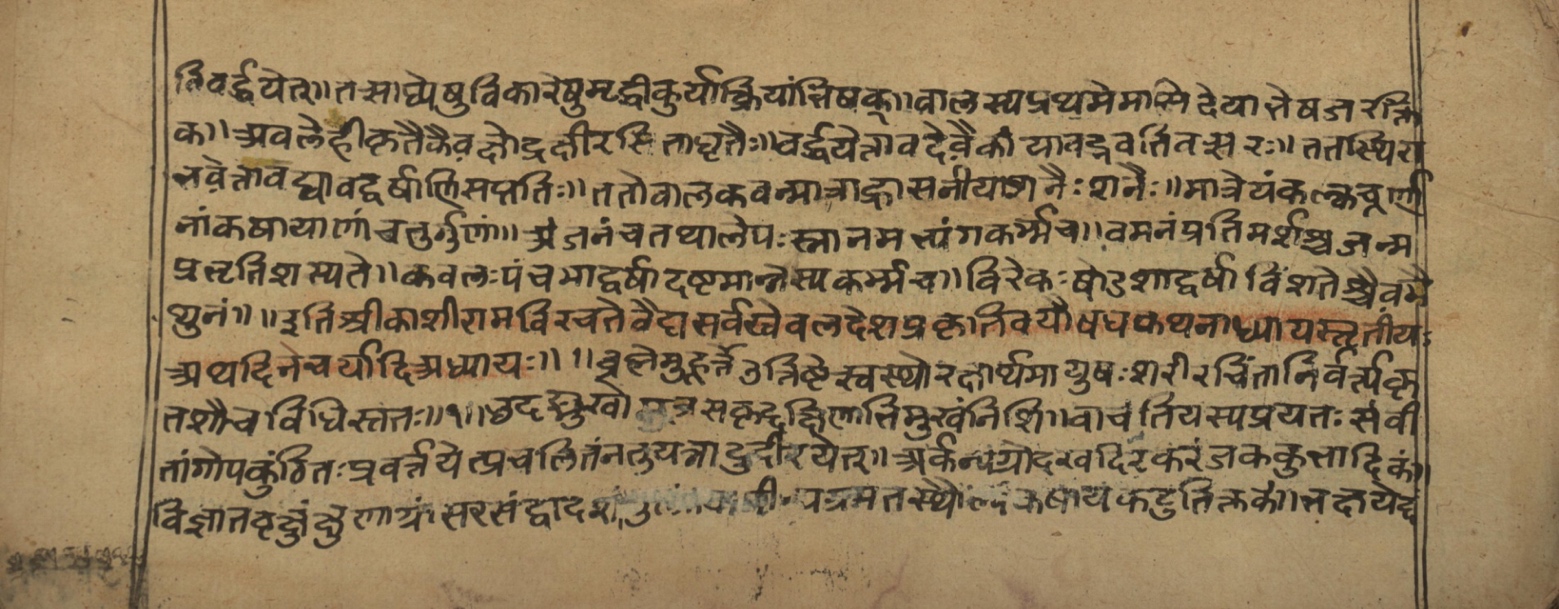 तिवर्द्धयेत्॥ तत्साध्येषुविकारेषुमृद्वीकुर्यात्क्रियांभिषक्॥ वालस्यप्रथमेमासिदेयाभेषजरक्ति
का॥ अवलेहीकृतैकैवक्षौद्रक्षीरसिताघृतैः॥ वर्द्धयेत्तावदेवैकां यावद्भवतिवत्सरः॥ ततस्थिरा
भवेत्तावद्यावद्वर्षाणिसप्ततिः॥ ततोवालकवन्मात्राह्रासनीयाशनैः शनैः॥ मात्रेयंकल्कचूर्णा
नांकषायाणांचतुर्गुणां॥ अंजनंचतथालेपः स्नानमभ्यंगकर्म्मच॥ वमनंप्रतिमर्शश्चजन्म
प्रभृतिशस्यते॥ कवलः पंचमाद्वर्षादष्टमान्नस्यकर्म्मच॥ विरेकः षोडशाद्वर्षाविंशतेश्चैवमै
थुनं॥ ॥ इतिश्रीकाशीरामविरचतेवैद्यसर्वस्वेवलदेशप्रकृतिवयौषधकथनाध्यायस्तृतीयः
अथदिनचर्यादिअध्यायः॥ ॥ ब्रह्मेमुहूर्त्तेउत्तिष्टेत्स्वस्थोरक्षार्थमायुषः शरीरचिंतांनिर्वर्त्यकृ
तशौचविधिस्ततः॥१॥ उदङ्मुखो सकृद्दक्षिणाभिमुखंनिशि॥ वाचं तियस्यप्रयतः संवी
तांगोपकुंठितः प्रवर्त्तयेत्प्रचलितंनतुयत्नादुदीरयेत्॥ अर्कन्यग्रोदखदिरकरंजककुभादिकं॥
विज्ञातवृक्षुंक्षुणाग्रं सरसंद्वादशं स्थौल्यं कषायकटुतिक्तकं॥ भक्षयेद्द